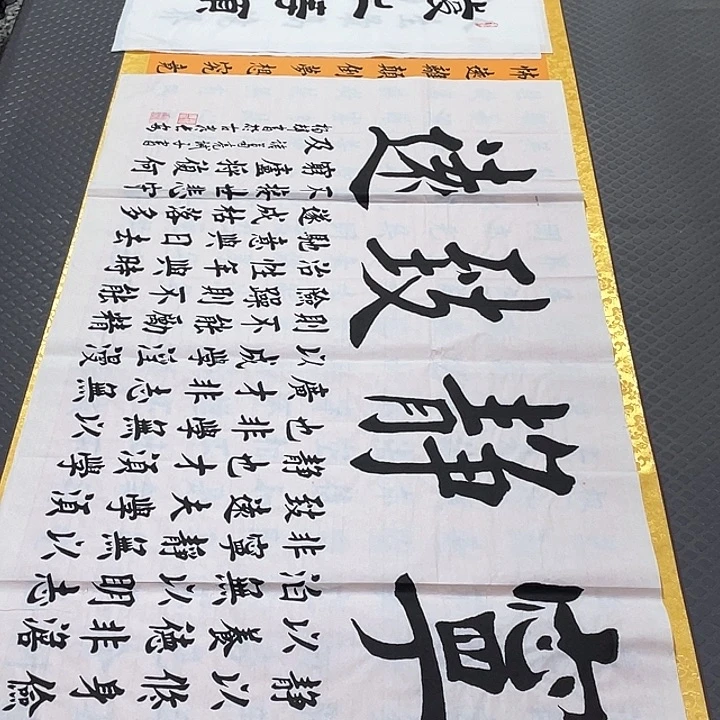 寧靜致遠
靜以修身儉
以養德非澹
泊無以明志
非寧靜無以
致遠夫學須
靜也才須學
也非學無以
廣才非志無
以成學淫慢
則不能勵精
險躁則不能
治性年與時
馳意與日去
遂成枯落多
不接世悲守
窮廬將復何
及 諸葛亮誡子書
怖遠離顛倒夢想究竟